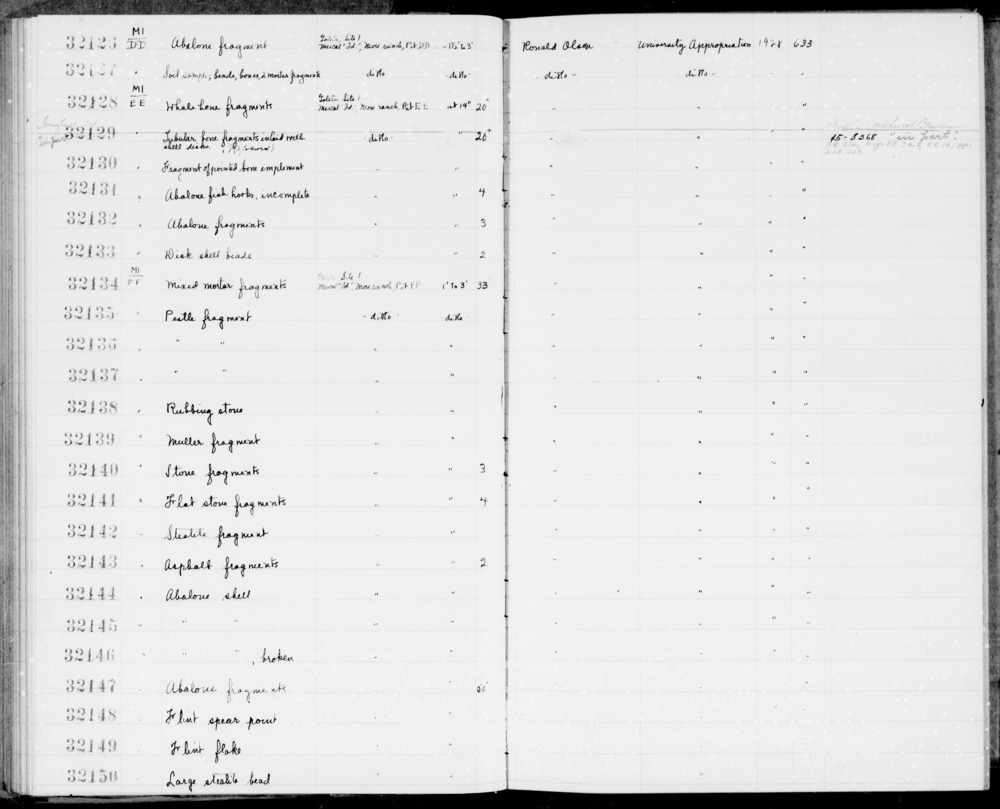 MI
32126 DD Abalone fragment Goleta, Site 1 Mescal "Id.", More ranch, Pit DD - 1½ to 3' Ronald Olson University Appropriation 1928 633
32127 " Soil sample; beads, bones, & mortar fragments ditto - ditto - - ditto - - ditto - " "
MI
32128 EE Whale bone fragments Goleta Site 1 Mescal "Id.", More ranch, Pit EE at 19" 20+ " " " "
32129 Tubular bone fragments inlaid with ditto " 20+ " " " " 15-8368 "in part".
shell disks.
32130 " Fragment of pointed bone implement " " " " " "
32131 " Abalone fish hooks, incomplete " " 4 " " " "
32132 " Abalone fragments " " 3 " " " "
32133 " Disk shell beads " " 2 " " " "
MI
32134 FF Mixed mortar fragments Site 1 Mescal "Id.", More ranch, Pit FF 1' to 3' 33 " " " "
32135 " Pestle fragment - ditto - ditto " " " "
32136 " " " " " " " " "
32137 " " " " " " " " "
32138 " Rubbing stone " " " " " "
32139 " Muller fragment " " " " " "
32140 " Stone fragments " " 3 " " " "
32141 " Flat stone fragments " " 4 " " " "
32142 " Steatite fragment " " " " " "
32143 " Asphalt fragments " " 2 " " " "
32144 " Abalone shell " " " " " "
32145 " " " " " " " " "
32146 " " " , broken " " " " " "
32147 " Abalone fragments " " 50 " " " "
32148 " Flint spear point " " " " " "
32149 " Flint flake " " " " " "
32150 " Large steatite bead " " " " " "